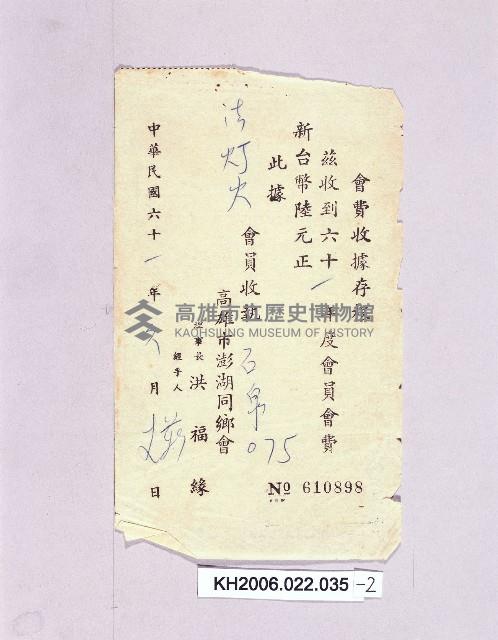 會費收據存根
茲收到六十一年度會員會費
新台幣陸元正
此據
會員收執
075
灯火
高雄市澎湖同鄉會
理事長 洪福緣
經手人
中華民國六十一年 月 日
№ 610898
高雄市立歷史博物館
KAOHSIUNG MUSEUM OF HISTORY
KH2006.022.035-2